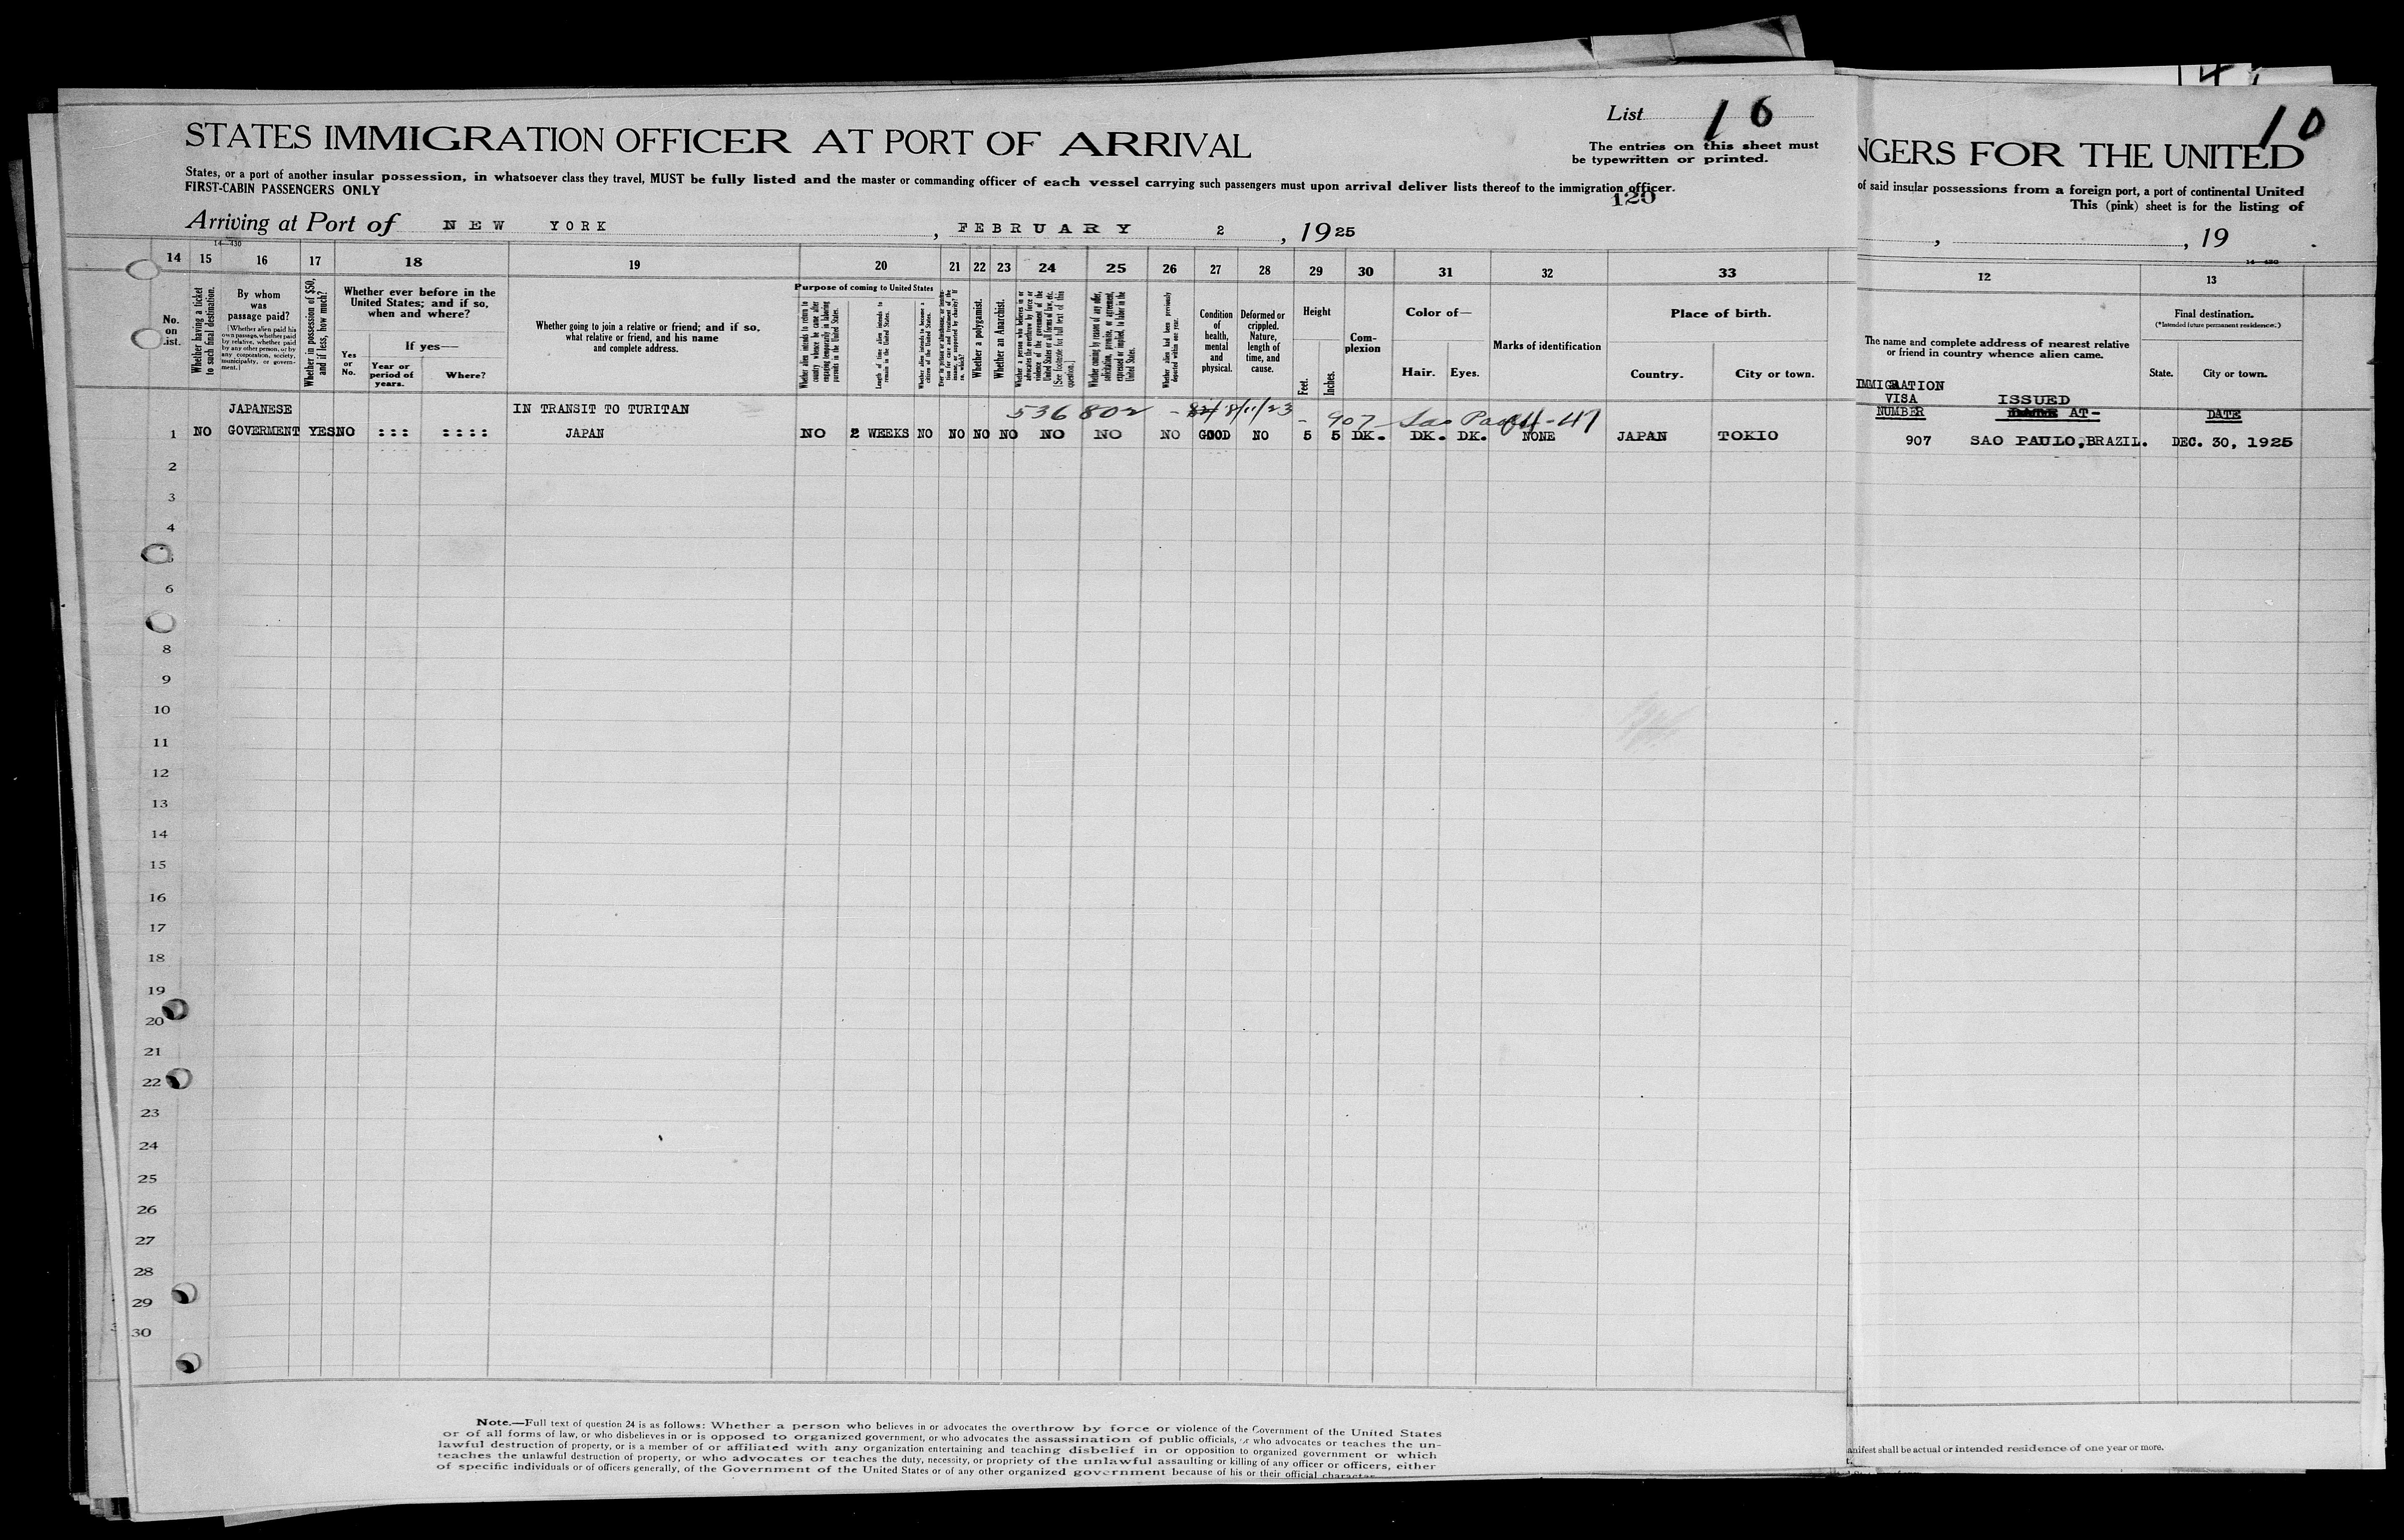 List 16
STATES IMMIGRATION OFFICER AT PORT OF ARRIVAL
The entries on this sheet must
be typewritten or printed.
States, or a port of another insular possession, in whatsoever class they travel, MUST be fully listed and the master or commanding officer of each vessel carrying such passengers must upon arrival deliver lists thereof to the immigration officer.
FIRST-CABIN PASSENGERS ONLY
120
Arriving at Port of NEW YORK, FEBRUARY 2, 1925
14—430
14 15 16 17 18 19 20 21 22 23 24 25 26 27 28 29 30 31 32 33
No. on List.
Whether having a ticket to such final destination.
By whom was passage paid?
(Whether alien paid his own passage, whether paid by relative, whether paid by any other person, or by any corporation, society, municipality, or government.)
Whether in possession of $50, and if less, how much?
Whether ever before in the United States; and if so, when and where?
Yes or No.
If yes—
Year or period of years.
Where?
Whether going to join a relative or friend; and if so, what relative or friend, and his name and complete address.
Purpose of coming to United States
Whether alien intends to return to country whence he came after engaging temporarily in laboring pursuits in the United States.
Length of time alien intends to remain in the United States.
Whether alien intends to become a citizen of the United States.
Whether a polygamist.
Whether an Anarchist.
Whether coming by reason of any offer, solicitation, promise, or agreement, expressed or implied, to labor in the United States.
Whether alien had been previously deported within one year.
Condition of health, mental and physical.
Deformed or crippled. Nature, length of time, and cause.
Height
Feet.
Inches.
Complexion
Color of—
Hair.
Eyes.
Marks of identification
Place of birth.
Country.
City or town.
JAPANESE IN TRANSIT TO TURITAN 536802 - 8/11/23 - 907 Sao Paulo
1 NO GOVERMENT YES NO ::: :::: JAPAN NO 2 WEEKS NO NO NO NO NO NO NO GOOD NO 5 5 DK. DK. DK. NONE JAPAN TOKIO
2
3
4
5
6
8
9
10
11
12
13
14
15
16
17
18
19
20
21
22
23
24
25
26
27
28
29
30
Note.—Full text of question 24 is as follows: Whether a person who believes in or advocates the overthrow by force or violence of the Government of the United States
or of all forms of law, or who disbelieves in or is opposed to organized government, or who advocates the assassination of public officials, or who advocates or teaches the un-
lawful destruction of property, or is a member of or affiliated with any organization entertaining and teaching disbelief in or opposition to organized government or which
teaches the unlawful destruction of property, or who advocates or teaches the duty, necessity, or propriety of the unlawful assaulting or killing of any officer or officers, either
of specific individuals or of officers generally, of the Government of the United States or of any other organized government because of his or their official character.
10
NGERS FOR THE UNITED
of said insular possessions from a foreign port, a port of continental United
This (pink) sheet is for the listing of
, , 19 .
14—430
12 13
The name and complete address of nearest relative
or friend in country whence alien came.
Final destination.
(*Intended future permanent residence.)
State.
City or town.
IMMIGRATION
VISA ISSUED
NUMBER AT- DATE
907 SAO PAULO, BRAZIL. DEC. 30, 1925
anifest shall be actual or intended residence of one year or more.